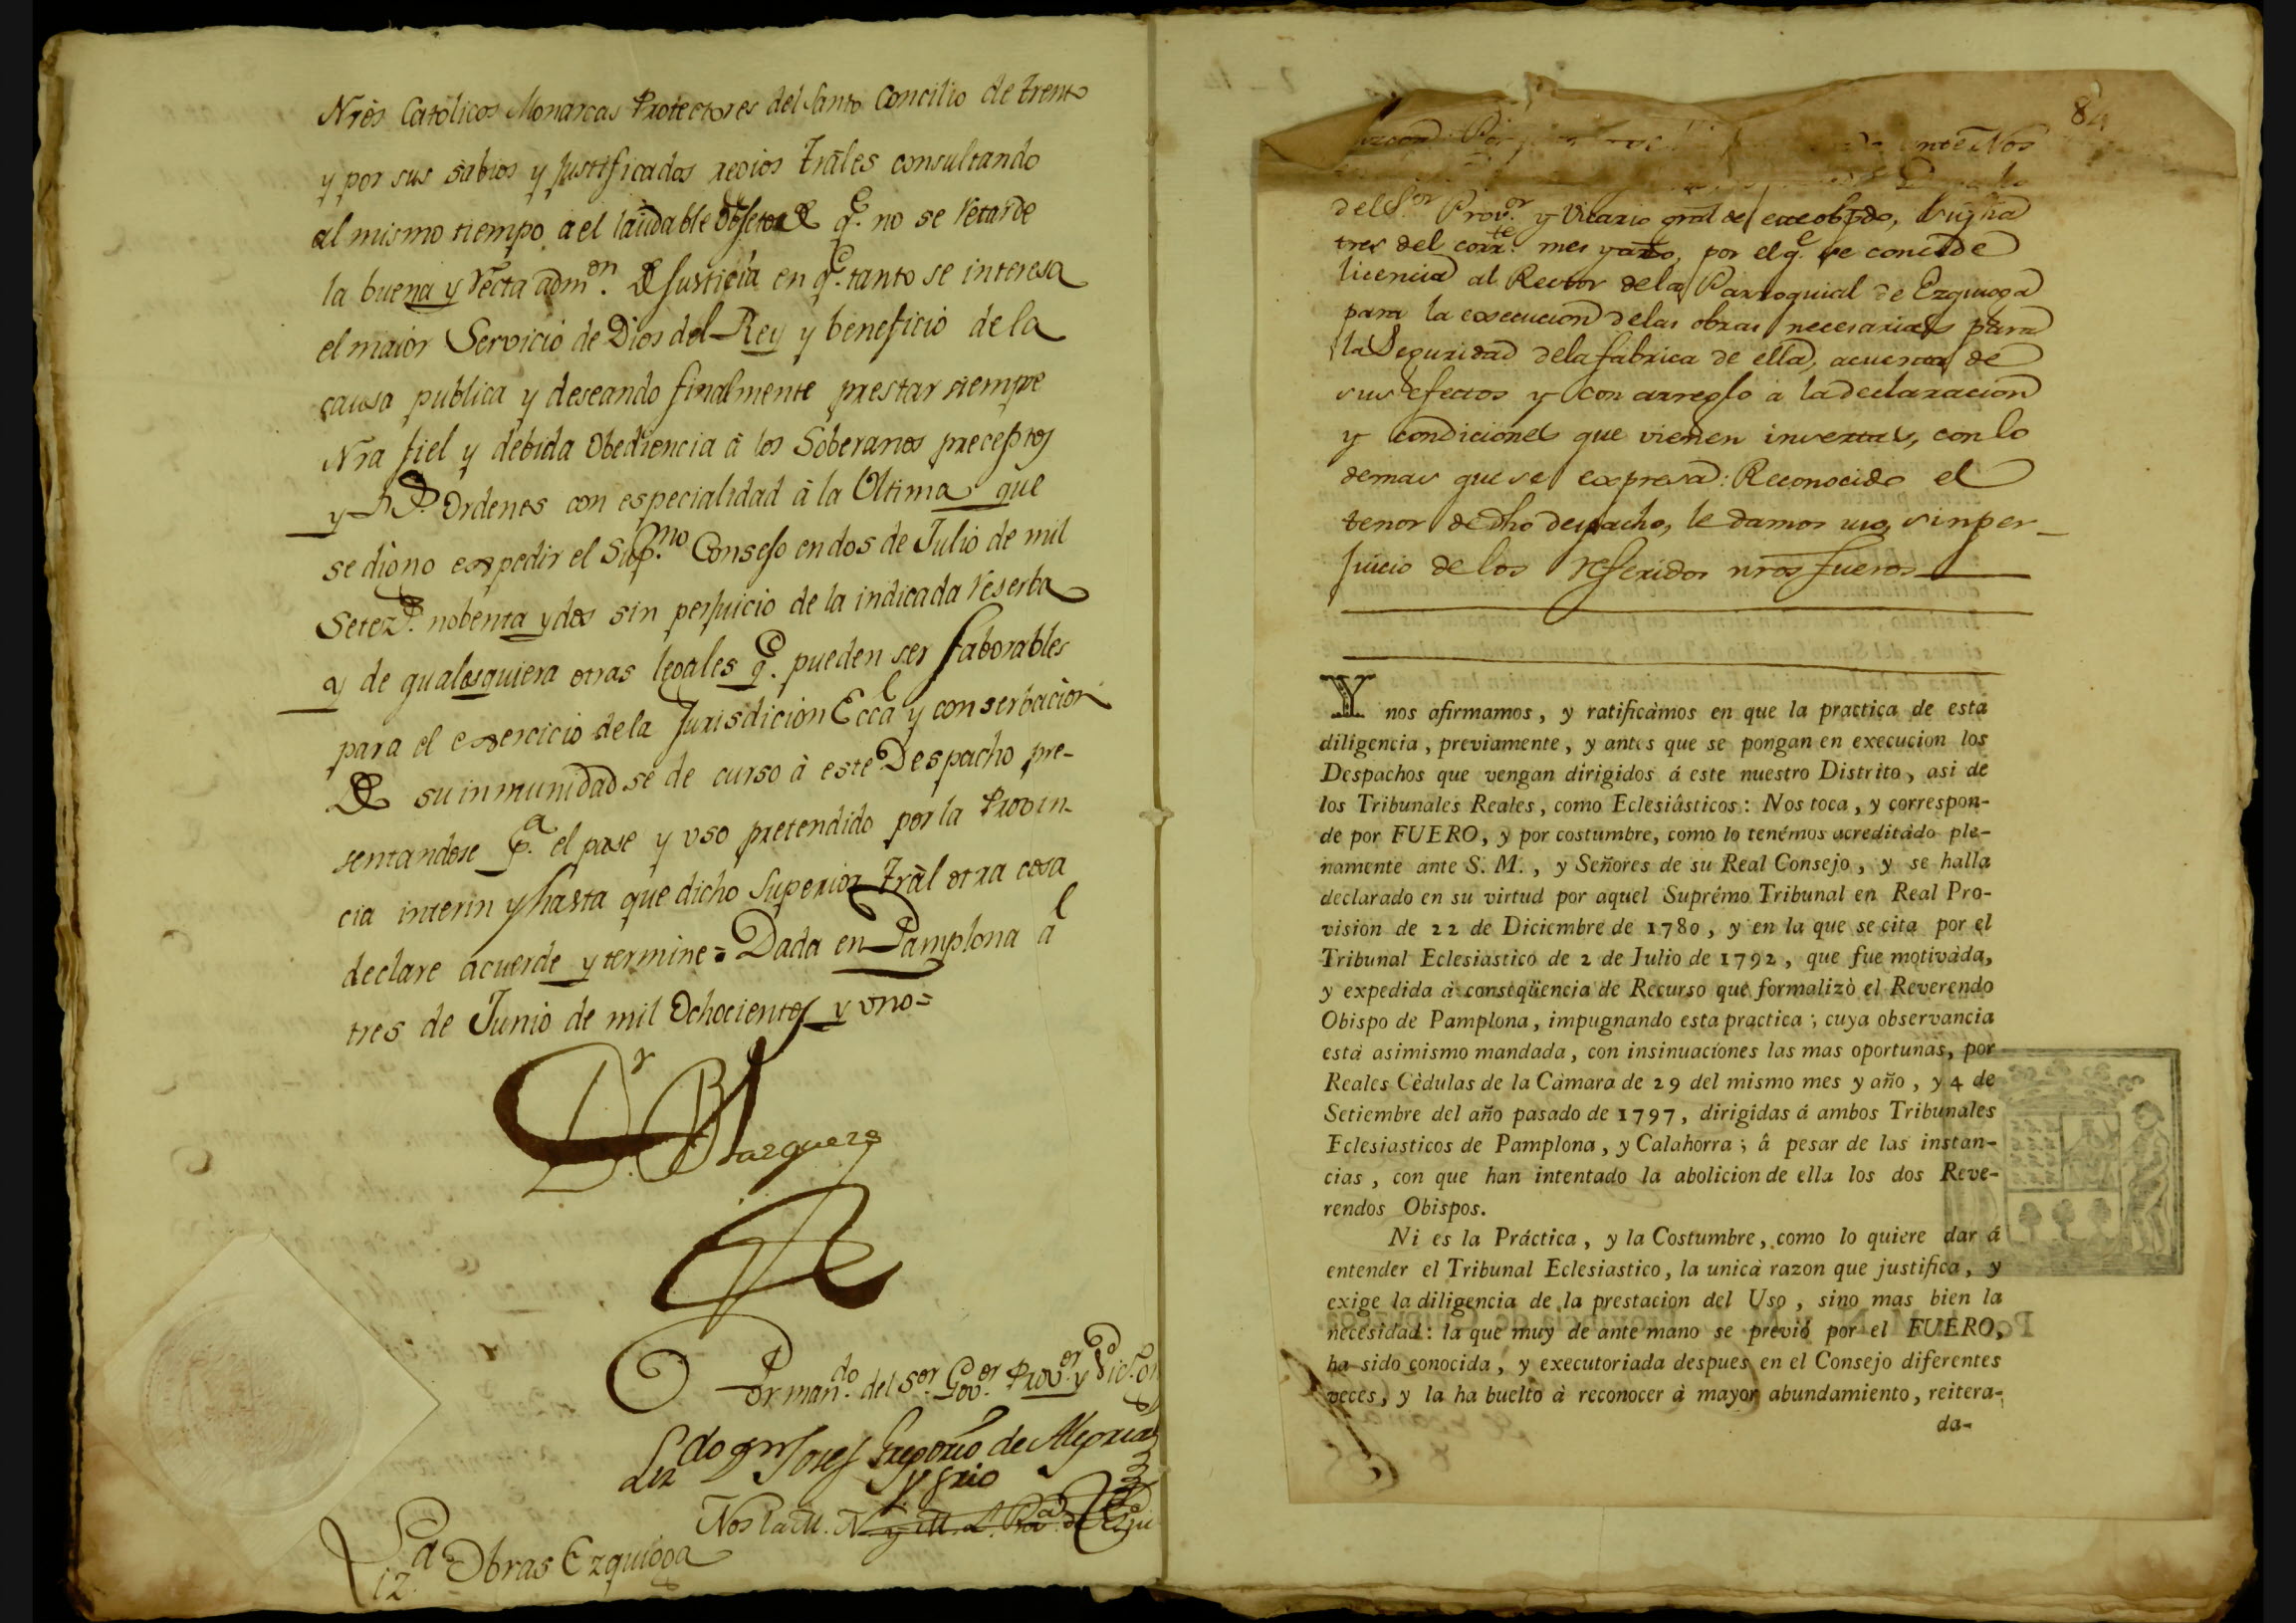 Nrôs Catolicos Monarcas Protectores del Santo Concilio de trento
y por sus sabios y justificados regios trâles consultando
al mismo tiempo a el laudable objeto de q.e no se retarde
la buena y recta adm.on de Justicia en q.e tanto se interesa
el maior Servicio de Dios del Rey y beneficio de la
causa publica y deseando finalmente prestar siempre
Nra fiel y debida Obediencia â los Soberanos preceptos
y Ordenes con especialidad â la Ultima que
se digno expedir el Sup.mo Consejo en dos de Julio de mil
Setez.s nobenta y dos sin perjuicio de la indicada reserba
y de qualesquiera otras legales q.e pueden ser faborables
para el exercicio de la Jurisdicion Eccla y conserbacion
de su inmunidad se de curso à este Despacho pre-
sentandose p.a el pase y uso pretendido por la Provin-
cia interin y hasta que dicho Superior trâl otra cosa
declare acuerde y termine = Dada en Pamplona á
tres de Junio de mil Ochocientos y uno =
D.r Blazquez
Por man.do del S.or Gov.or Prov.or y Vic.
Lizdo Dn Josef Gregorio de Alegria
srio
Nos la M. N. y M. L. Prov.a de
Obras Ezquioga
12.
84
ante Nos
del S.or Prov.or y Vicario gral de este obpdo, su fha
tres del corr.te mes y año, por el q.e se concede
licencia al Rector de la Parroquial de Ezquioga
para la execucion de las obras necesarias para
la Seguridad de la fabrica de ella, a cuenta de
sus efectos y con arreglo a la declaracion
y condiciones que vienen insertas, con lo
demas que se expresa: Reconocido el
tenor de dho despacho, le damos uso, sin per-
juicio de los referidos nros fueros
Y nos afirmamos, y ratificàmos en que la practica de esta
diligencia, previamente, y antes que se pongan en execucion los
Despachos que vengan dirigidos á este nuestro Distrito, asi de
los Tribunales Reales, como Eclesiâsticos: Nos toca, y correspon-
de por FUERO, y por costumbre, como lo tenémos acreditàdo ple-
namente ante S. M., y Señores de su Real Consejo, y se halla
declarado en su virtud por aquel Suprémo Tribunal en Real Pro-
vision de 22 de Diciembre de 1780, y en la que se cita por el
Tribunal Eclesiastico de 2 de Julio de 1792, que fue motivàda,
y expedida à conseqüencia de Recurso que formalizò el Reverendo
Obispo de Pamplona, impugnando esta practica; cuya observancia
està asimismo mandada, con insinuaciones las mas oportunas, por
Reales Cèdulas de la Càmara de 29 del mismo mes y año, y 4 de
Setiembre del año pasado de 1797, dirigidas á ambos Tribunales
Eclesiasticos de Pamplona, y Calahorra; â pesar de las instan-
cias, con que han intentado la abolicion de ella los dos Reve-
rendos Obispos.
Ni es la Práctica, y la Costumbre, como lo quiere dar á
entender el Tribunal Eclesiastico, la unicà razon que justifica, y
exige la diligencia de la prestacion del Uso, sino mas bien la
necesidad: la que muy de ante mano se previó por el FUERO,
ha sido conocida, y executoriada despues en el Consejo diferentes
veces, y la ha buelto à reconocer à mayor abundamiento, reitera-
da-